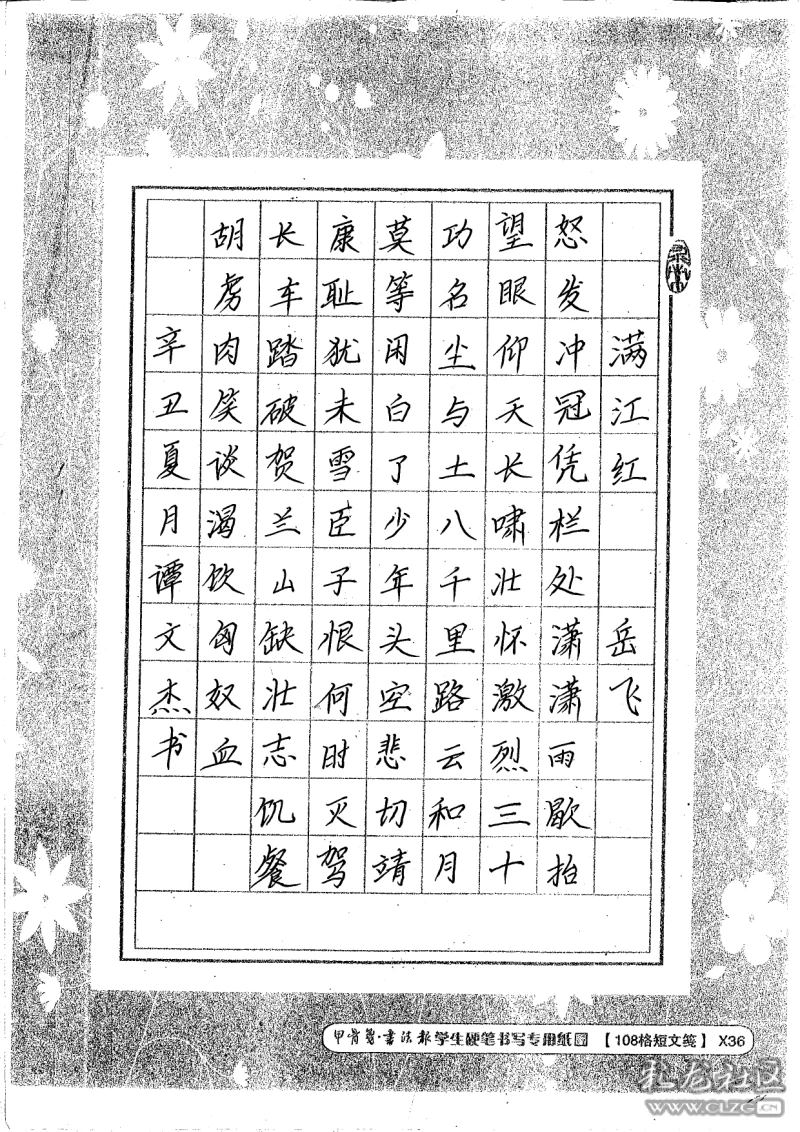 满江红 岳飞
怒发冲冠凭栏处潇潇雨歇抬
望眼仰天长啸壮怀激烈三十
功名尘与土八千里路云和月
莫等闲白了少年头空悲切靖
康耻犹未雪臣子恨何时灭驾
长车踏破贺兰山缺壮志饥餐
胡虏肉笑谈渴饮匈奴血
辛丑夏月谭文杰书
甲骨笺·书法报学生硬笔书写专用纸 【108格短文笺】 X36
札龙社区
WWW.CLZG.CN